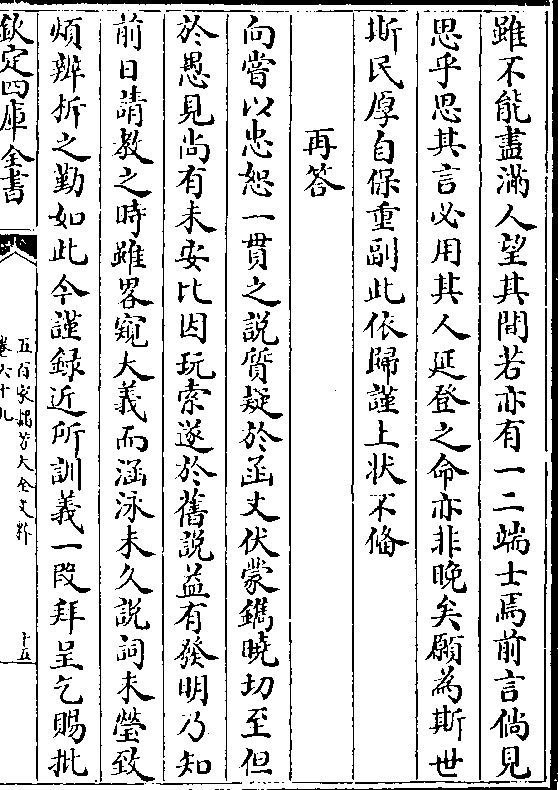 雖不能盡滿人望其間若亦有一二端士焉前言倘見
思乎思其言必用其人延登之命亦非晚矣願為斯世
斯民厚自保重副此依歸謹上狀不俻
再答
向嘗以忠恕一貫之説質疑於函丈伏蒙鐫曉切至但
於愚見尚有未安比因玩索遂於舊説益有發明乃知
前日請教之時雖畧窺大義而涵泳未久説詞未瑩致
煩辨折之勤如此今謹録近所訓義一段拜呈乞賜批
欽定四庫全書
五百家播芳大全文粹
卷六十九
十五